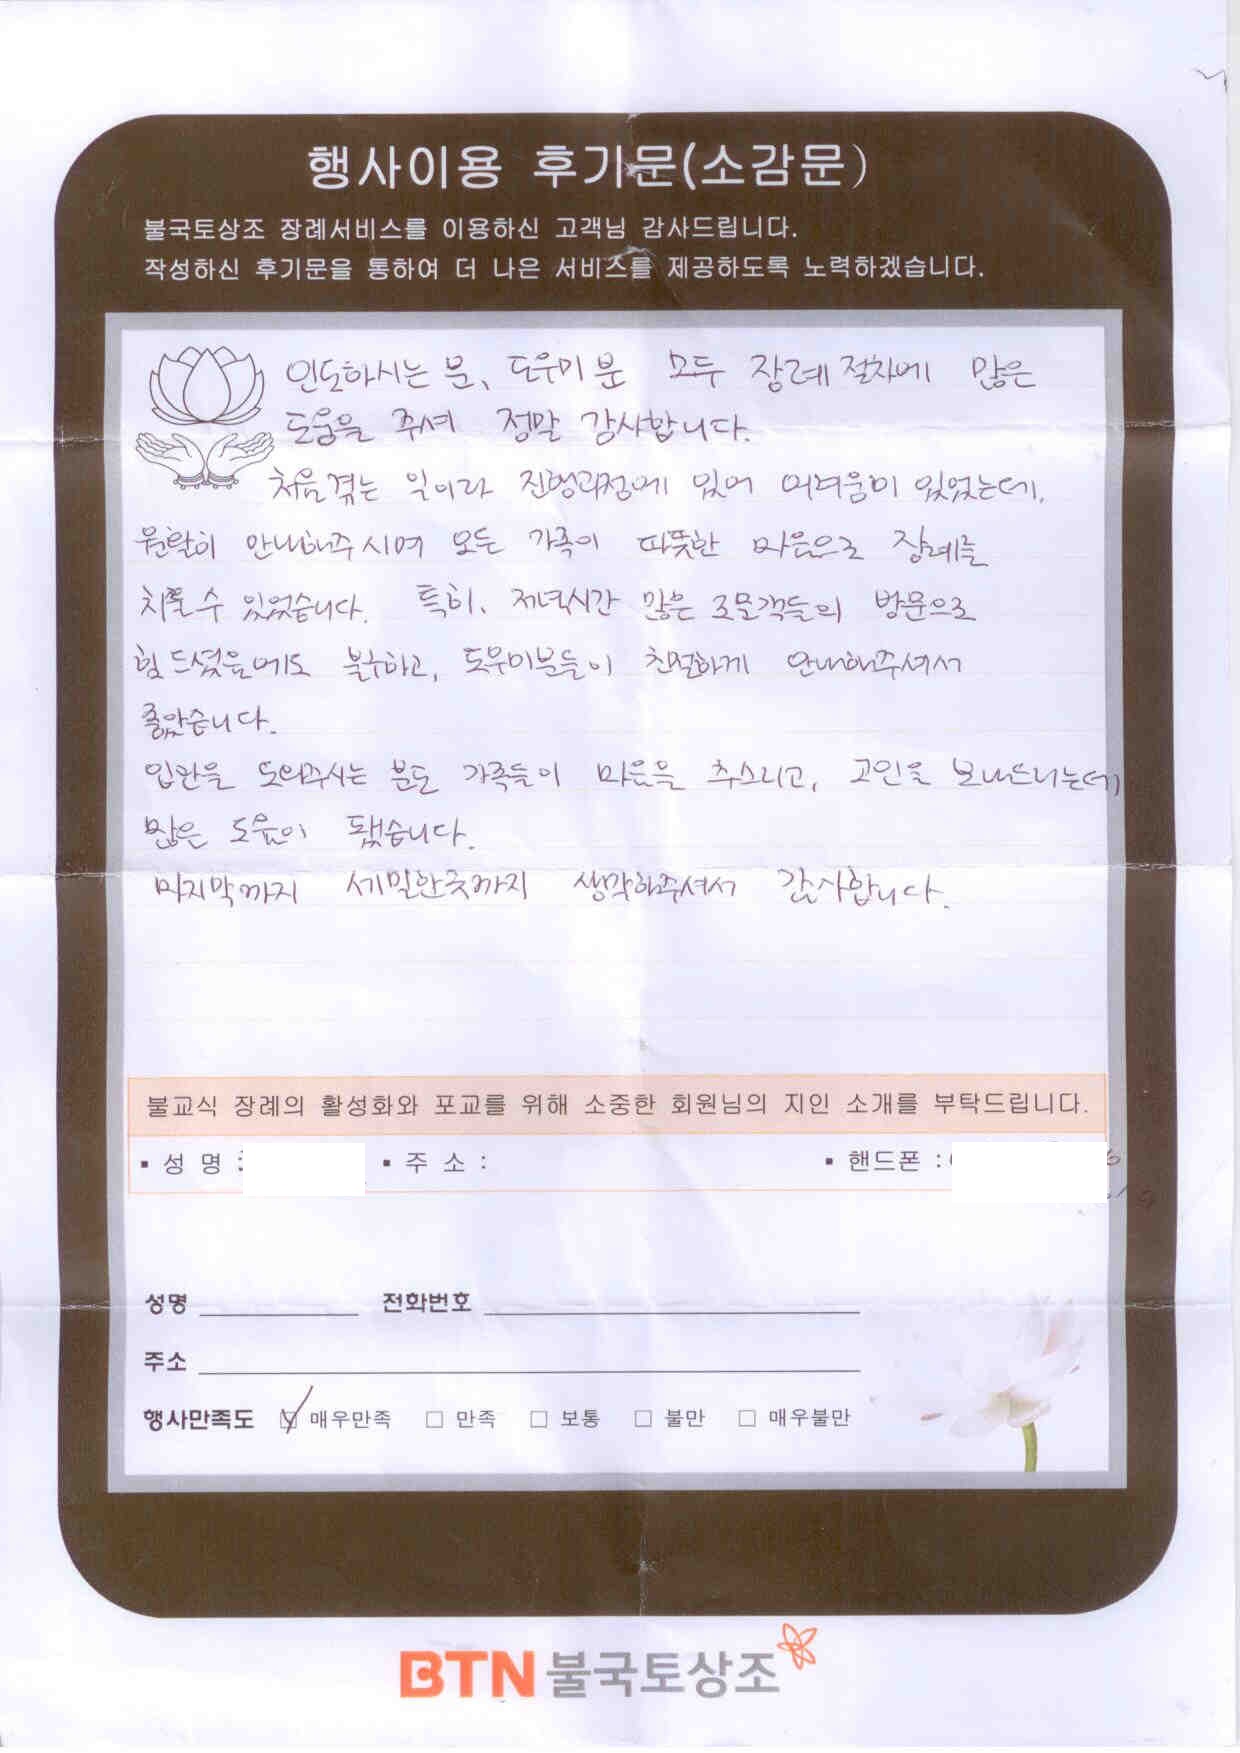 행사이용 후기문(소감문)
불국토상조 장례서비스를 이용하신 고객님 감사드립니다.
작성하신 후기문을 통하여 더 나은 서비스를 제공하도록 노력하겠습니다.
인도하시는 분, 도우미 분 모두 장례 절차에 많은
도움을 주셔 정말 감사합니다.
처음 겪는 일이라 진행과정에 있어 어려움이 있었는데,
원활히 안내해주시며 모든 가족이 따뜻한 마음으로 장례를
치룰 수 있었습니다. 특히, 저녁시간 많은 조문객들의 방문으로
힘드셨음에도 불구하고, 도우미분들이 친절하게 안내해주셔서
좋았습니다.
입관을 도와주시는 분도 가족들이 마음을 추스리고, 고인을 보내드리는데
많은 도움이 됐습니다.
마지막까지 세밀한곳까지 생각해주셔서 감사합니다.
불교식 장례의 활성화와 포교를 위해 소중한 회원님의 지인 소개를 부탁드립니다.
▪ 성 명 : ▪ 주 소 : ▪ 핸드폰 :
성명 전화번호
주소
행사만족도 ☑ 매우만족 □ 만족 □ 보통 □ 불만 □ 매우불만
BTN 불국토상조